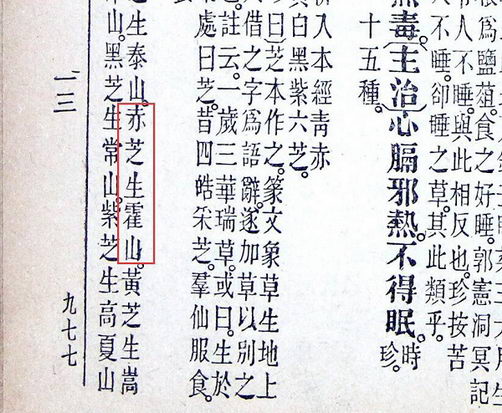 爲鹽葅。食之好睡。郭憲洞冥記
人不睡。與此相反也。珍按苦
人不睡。卻睡之草。其此類乎。
無毒〔主治〕心膈邪熱。不得眠。時珍。
十五種。
入本經青赤
白黑紫六芝。
曰〕芝本作之。篆文象草生地上
人借之字爲語辭。遂加草以別之
也。註云。一歲三華瑞草。或曰。生於
處曰芝。昔四皓采芝。羣仙服食。
芝生泰山。赤芝生霍山。黃芝生嵩
山。黑芝生常山。紫芝生高夏山
一三
九七七